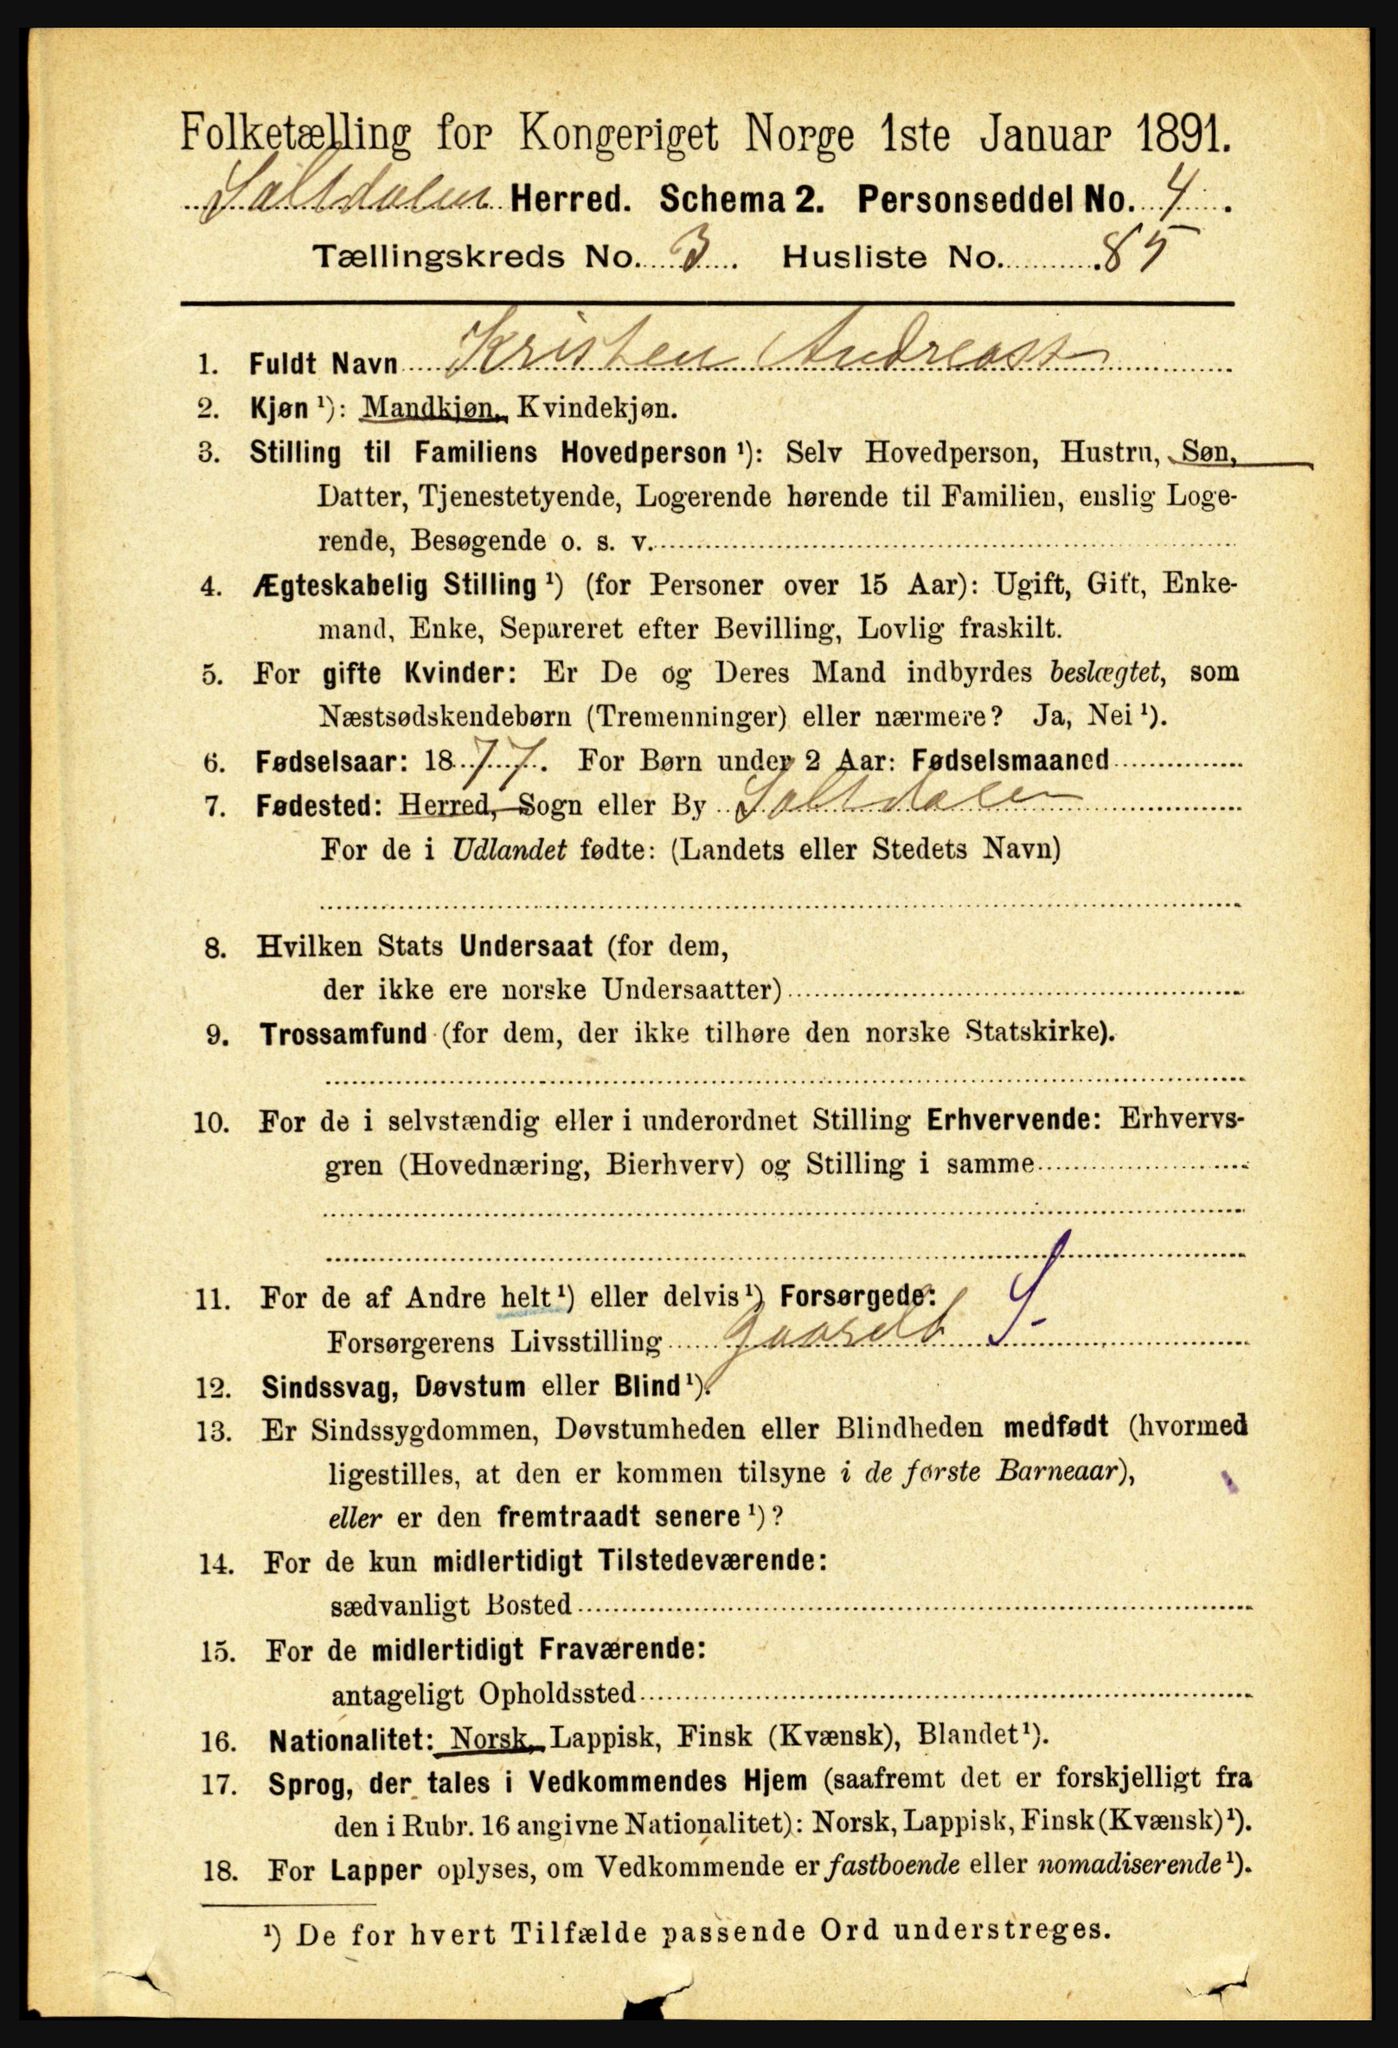 Folketælling for Kongeriget Norge 1ste Januar 1891.
Saltdalen Herred. Schema 2. Personseddel No. 4.
Tællingskreds No. 3. Husliste No. 85
1. Fuldt Navn Kristen Andreass
2. Kjøn ¹): Mandkjøn, Kvindekjøn.
3. Stilling til Familiens Hovedperson ¹): Selv Hovedperson, Hustru, Søn,
Datter, Tjenestetyende, Logerende hørende til Familien, enslig Loge-
rende, Besøgende o. s. v.
4. Ægteskabelig Stilling ¹) (for Personer over 15 Aar): Ugift, Gift, Enke-
mand, Enke, Separeret efter Bevilling, Lovlig fraskilt.
5. For gifte Kvinder: Er De og Deres Mand indbyrdes beslægtet, som
Næstsødskendebørn (Tremenninger) eller nærmere? Ja, Nei ¹).
6. Fødselsaar: 1877. For Børn under 2 Aar: Fødselsmaaned
7. Fødested: Herred, Sogn eller By Saltdalen
For de i Udlandet fødte: (Landets eller Stedets Navn)
8. Hvilken Stats Undersaat (for dem,
der ikke ere norske Undersaatter)
9. Trossamfund (for dem, der ikke tilhøre den norske Statskirke).
10. For de i selvstændig eller i underordnet Stilling Erhvervende: Erhvervs-
gren (Hovednæring, Bierhverv) og Stilling i samme
11. For de af Andre helt ¹) eller delvis ¹) Forsørgede:
Forsørgerens Livsstilling Gaardb S.
12. Sindssvag, Døvstum eller Blind ¹).
13. Er Sindssygdommen, Døvstumheden eller Blindheden medfødt (hvormed
ligestilles, at den er kommen tilsyne i de første Barneaar),
eller er den fremtraadt senere ¹)?
14. For de kun midlertidigt Tilstedeværende:
sædvanligt Bosted
15. For de midlertidigt Fraværende:
antageligt Opholdssted
16. Nationalitet: Norsk, Lappisk, Finsk (Kvænsk), Blandet ¹).
17. Sprog, der tales i Vedkommendes Hjem (saafremt det er forskjelligt fra
den i Rubr. 16 angivne Nationalitet): Norsk, Lappisk, Finsk (Kvænsk) ¹).
18. For Lapper oplyses, om Vedkommende er fastboende eller nomadiserende ¹).
¹) De for hvert Tilfælde passende Ord understreges.